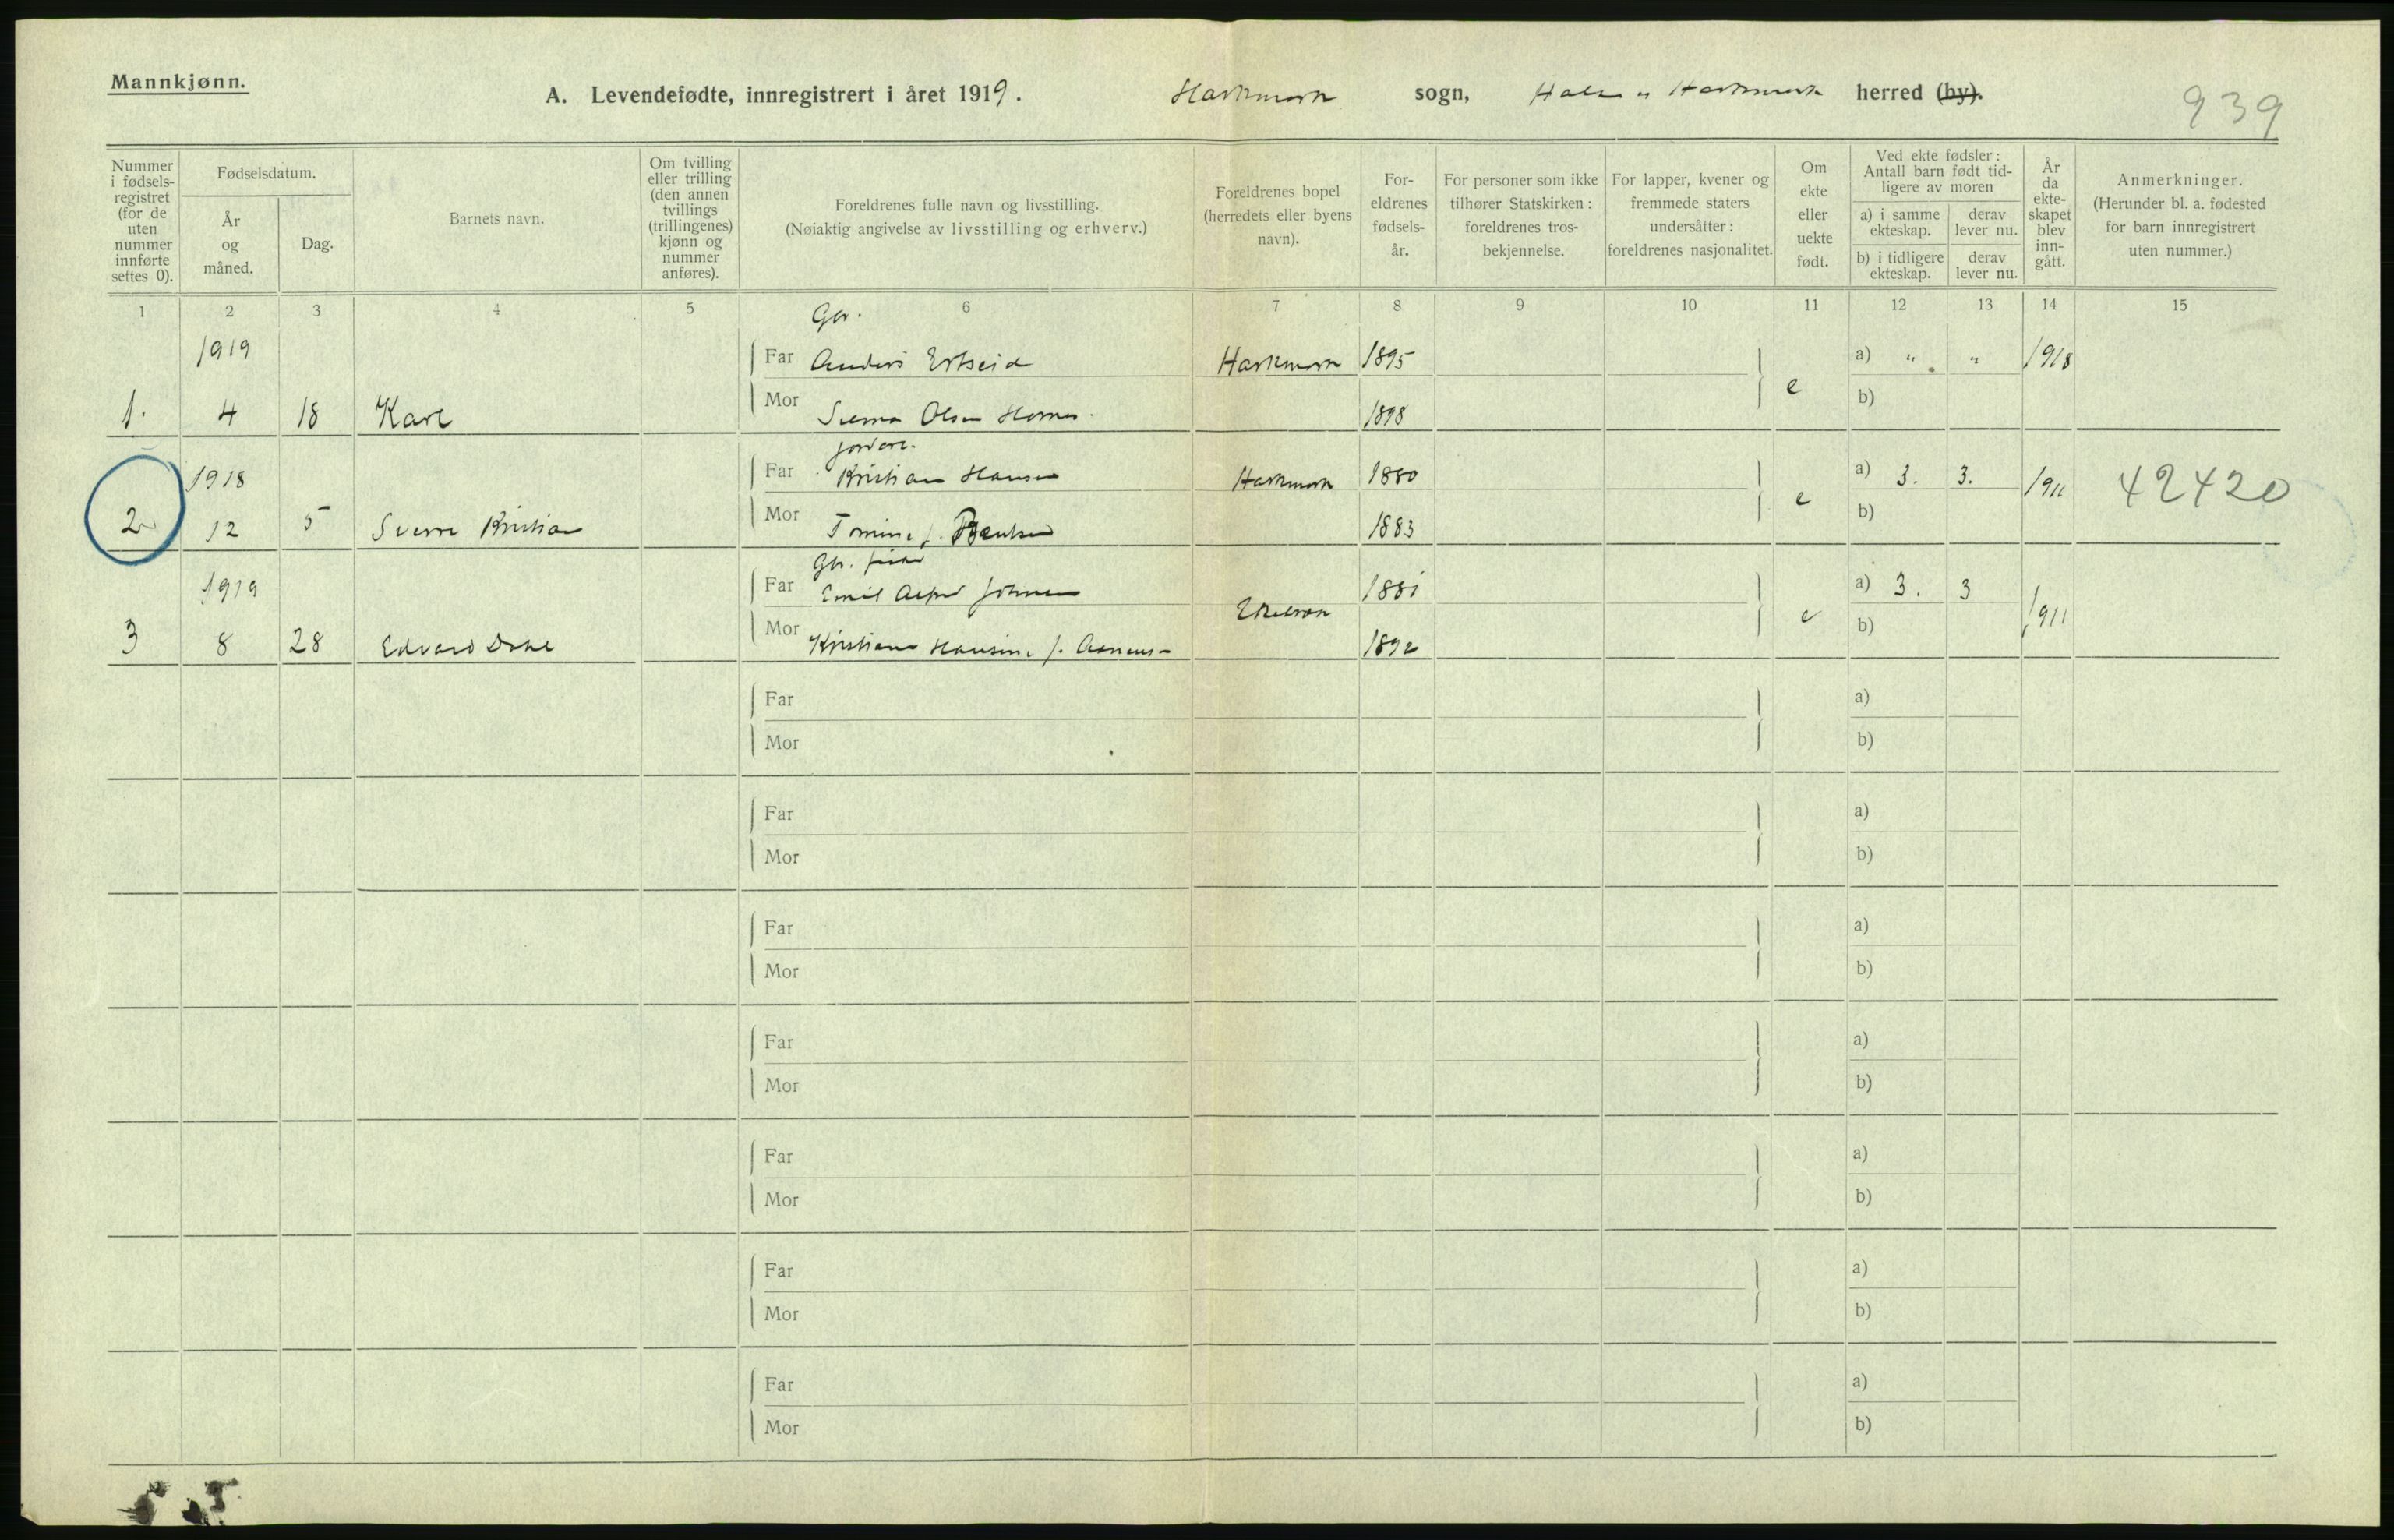 Mannkjønn.
A. Levendefødte, innregistrert i året 1919. Harkmark sogn, Halse " Harkmark herred (by).
939
Nummer i fødsels-registret (for de uten nummer innførte settes 0).
Fødselsdatum.
År og måned.
Dag.
Barnets navn.
Om tvilling eller trilling (den annen tvillings (trillingenes) kjønn og nummer anføres).
Foreldrenes fulle navn og livsstilling.
(Nøiaktig angivelse av livsstilling og erhverv.)
Foreldrenes bopel (herredets eller byens navn).
For-eldrenes fødsels-år.
For personer som ikke tilhører Statskirken: foreldrenes tros-bekjennelse.
For lapper, kvener og fremmede staters undersåtter: foreldrenes nasjonalitet.
Om ekte eller uekte født.
Ved ekte fødsler: Antall barn født tid-ligere av moren
a) i samme ekteskap.
derav lever nu.
b) i tidligere ekteskap.
derav lever nu.
År da ekte-skapet blev inn-gått.
Anmerkninger.
(Herunder bl. a. fødested for barn innregistrert uten nummer.)
1 2 3 4 5 6 7 8 9 10 11 12 13 14 15
Gbr.
1919 Far Anders Harkmark 1895 a) " " 1918
1. 4 18 Karl Mor Olsen 1898 e b)
1918 Far Kristian Hansen Harkmark 1880 a) 3. 3. 1911 42420
2 12 5 Sverre Kristian Mor Tomine f. 1883 e b)
Gbr. fisker
1919 Far Emil Alfred Johnsen 1881 a) 3. 3 1911
3 8 28 Edvard Mor Kristiane Hansine f. 1892 e b)
Far a)
Mor b)
Far a)
Mor b)
Far a)
Mor b)
Far a)
Mor b)
Far a)
Mor b)
Far a)
Mor b)
Far a)
Mor b)